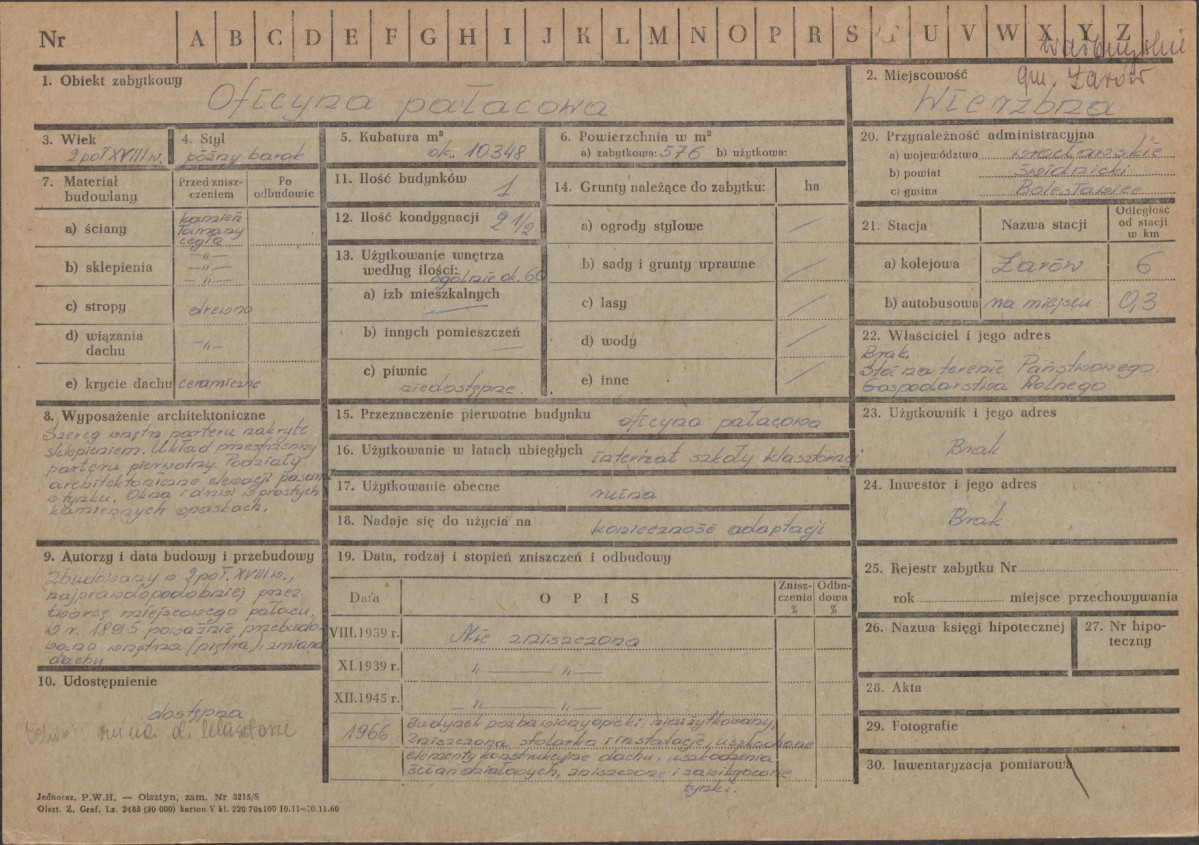 Nr A B C D E F G H I J K L M N O P R S T U V W X Y Z
wałbrzyskie
gm. Żarów
1. Obiekt zabytkowy
Oficyna pałacowa
2. Miejscowość
Wierzbna
3. Wiek
2 poł XVIII w.
4. Styl
późny barok
5. Kubatura m³
ok. 10348
6. Powierzchnia w m²
a) zabytkowa: 576 b) użytkowa:
20. Przynależność administracyjna
a) województwo wrocławskie
b) powiat świdnicki
c) gmina Bolesławice
7. Materiał budowlany
Przed znisz-
czeniem
Po
odbudowie
a) ściany
kamień
łamany
cegła
b) sklepienia
—"—
—"—
—"—
c) stropy drewno
d) wiązania
dachu —"—
e) krycie dachu ceramiczne
11. Ilość budynków 1
12. Ilość kondygnacji 2 1/2
13. Użytkowanie wnętrza
według ilości:
ogólnie ok. 60
a) izb mieszkalnych
b) innych pomieszczeń
—
c) piwnic
niedostępne.
14. Grunty należące do zabytku: ha
a) ogrody stylowe /
b) sady i grunty uprawne /
c) lasy /
d) wody /
e) inne /
21. Stacja Nazwa stacji
Odległość
od stacji
w km
a) kolejowa Żarów 6
b) autobusowa na miejscu 0,3
22. Właściciel i jego adres
Brak.
Stoi na terenie Państwowego
Gospodarstwa Rolnego
8. Wyposażenie architektoniczne
Szereg wnętrz parteru nakryte
sklepieniem. Układ przestrzenny
parteru pierwotny. Podziały
architektoniczne elewacji pasami
w tynku. Okna i drzwi w prostych
kamiennych opaskach.
15. Przeznaczenie pierwotne budynku oficyna pałacowa
16. Użytkowanie w latach ubiegłych internat szkoły klasztornej
17. Użytkowanie obecne ruina
18. Nadaje się do użycia na konieczność adaptacji
23. Użytkownik i jego adres
Brak
24. Inwestor i jego adres
Brak
9. Autorzy i data budowy i przebudowy
Zbudowany w 2 poł. XVIII w.,
najprawdopodobniej przez
twórcę miejscowego pałacu,
W r. 1895 poważnie przebudo-
wano wnętrza (piętra), zmiana
dachu
10. Udostępnienie
dostępna
ruina
19. Data, rodzaj i stopień zniszczeń i odbudowy
Data O P I S
Znisz-
czenia
%
Odbu-
dowa
%
VIII.1939 r. Nie zniszczona
XI.1939 r. " — " —
XII.1945 r. — " — — " —
1966 Budynek pozbawiony opieki, nieużytkowany,
Zniszczona stolarka i instalacje, uszkodzone
elementy konstrukcyjne dachu, uszkodzenia
ścian działowych, zniszczone i zawilgocone
tynki.
25. Rejestr zabytku Nr
rok miejsce przechowywania
26. Nazwa księgi hipotecznej
27. Nr hipo-
teczny
28. Akta
29. Fotografie
30. Inwentaryzacja pomiarowa
Jednoraz. P.W.H. — Olsztyn, zam. Nr 3215/S
Olszt. Z. Graf. Lz. 2488 (20 000) karton V kl. 220 70x100 10.11–30.11.60